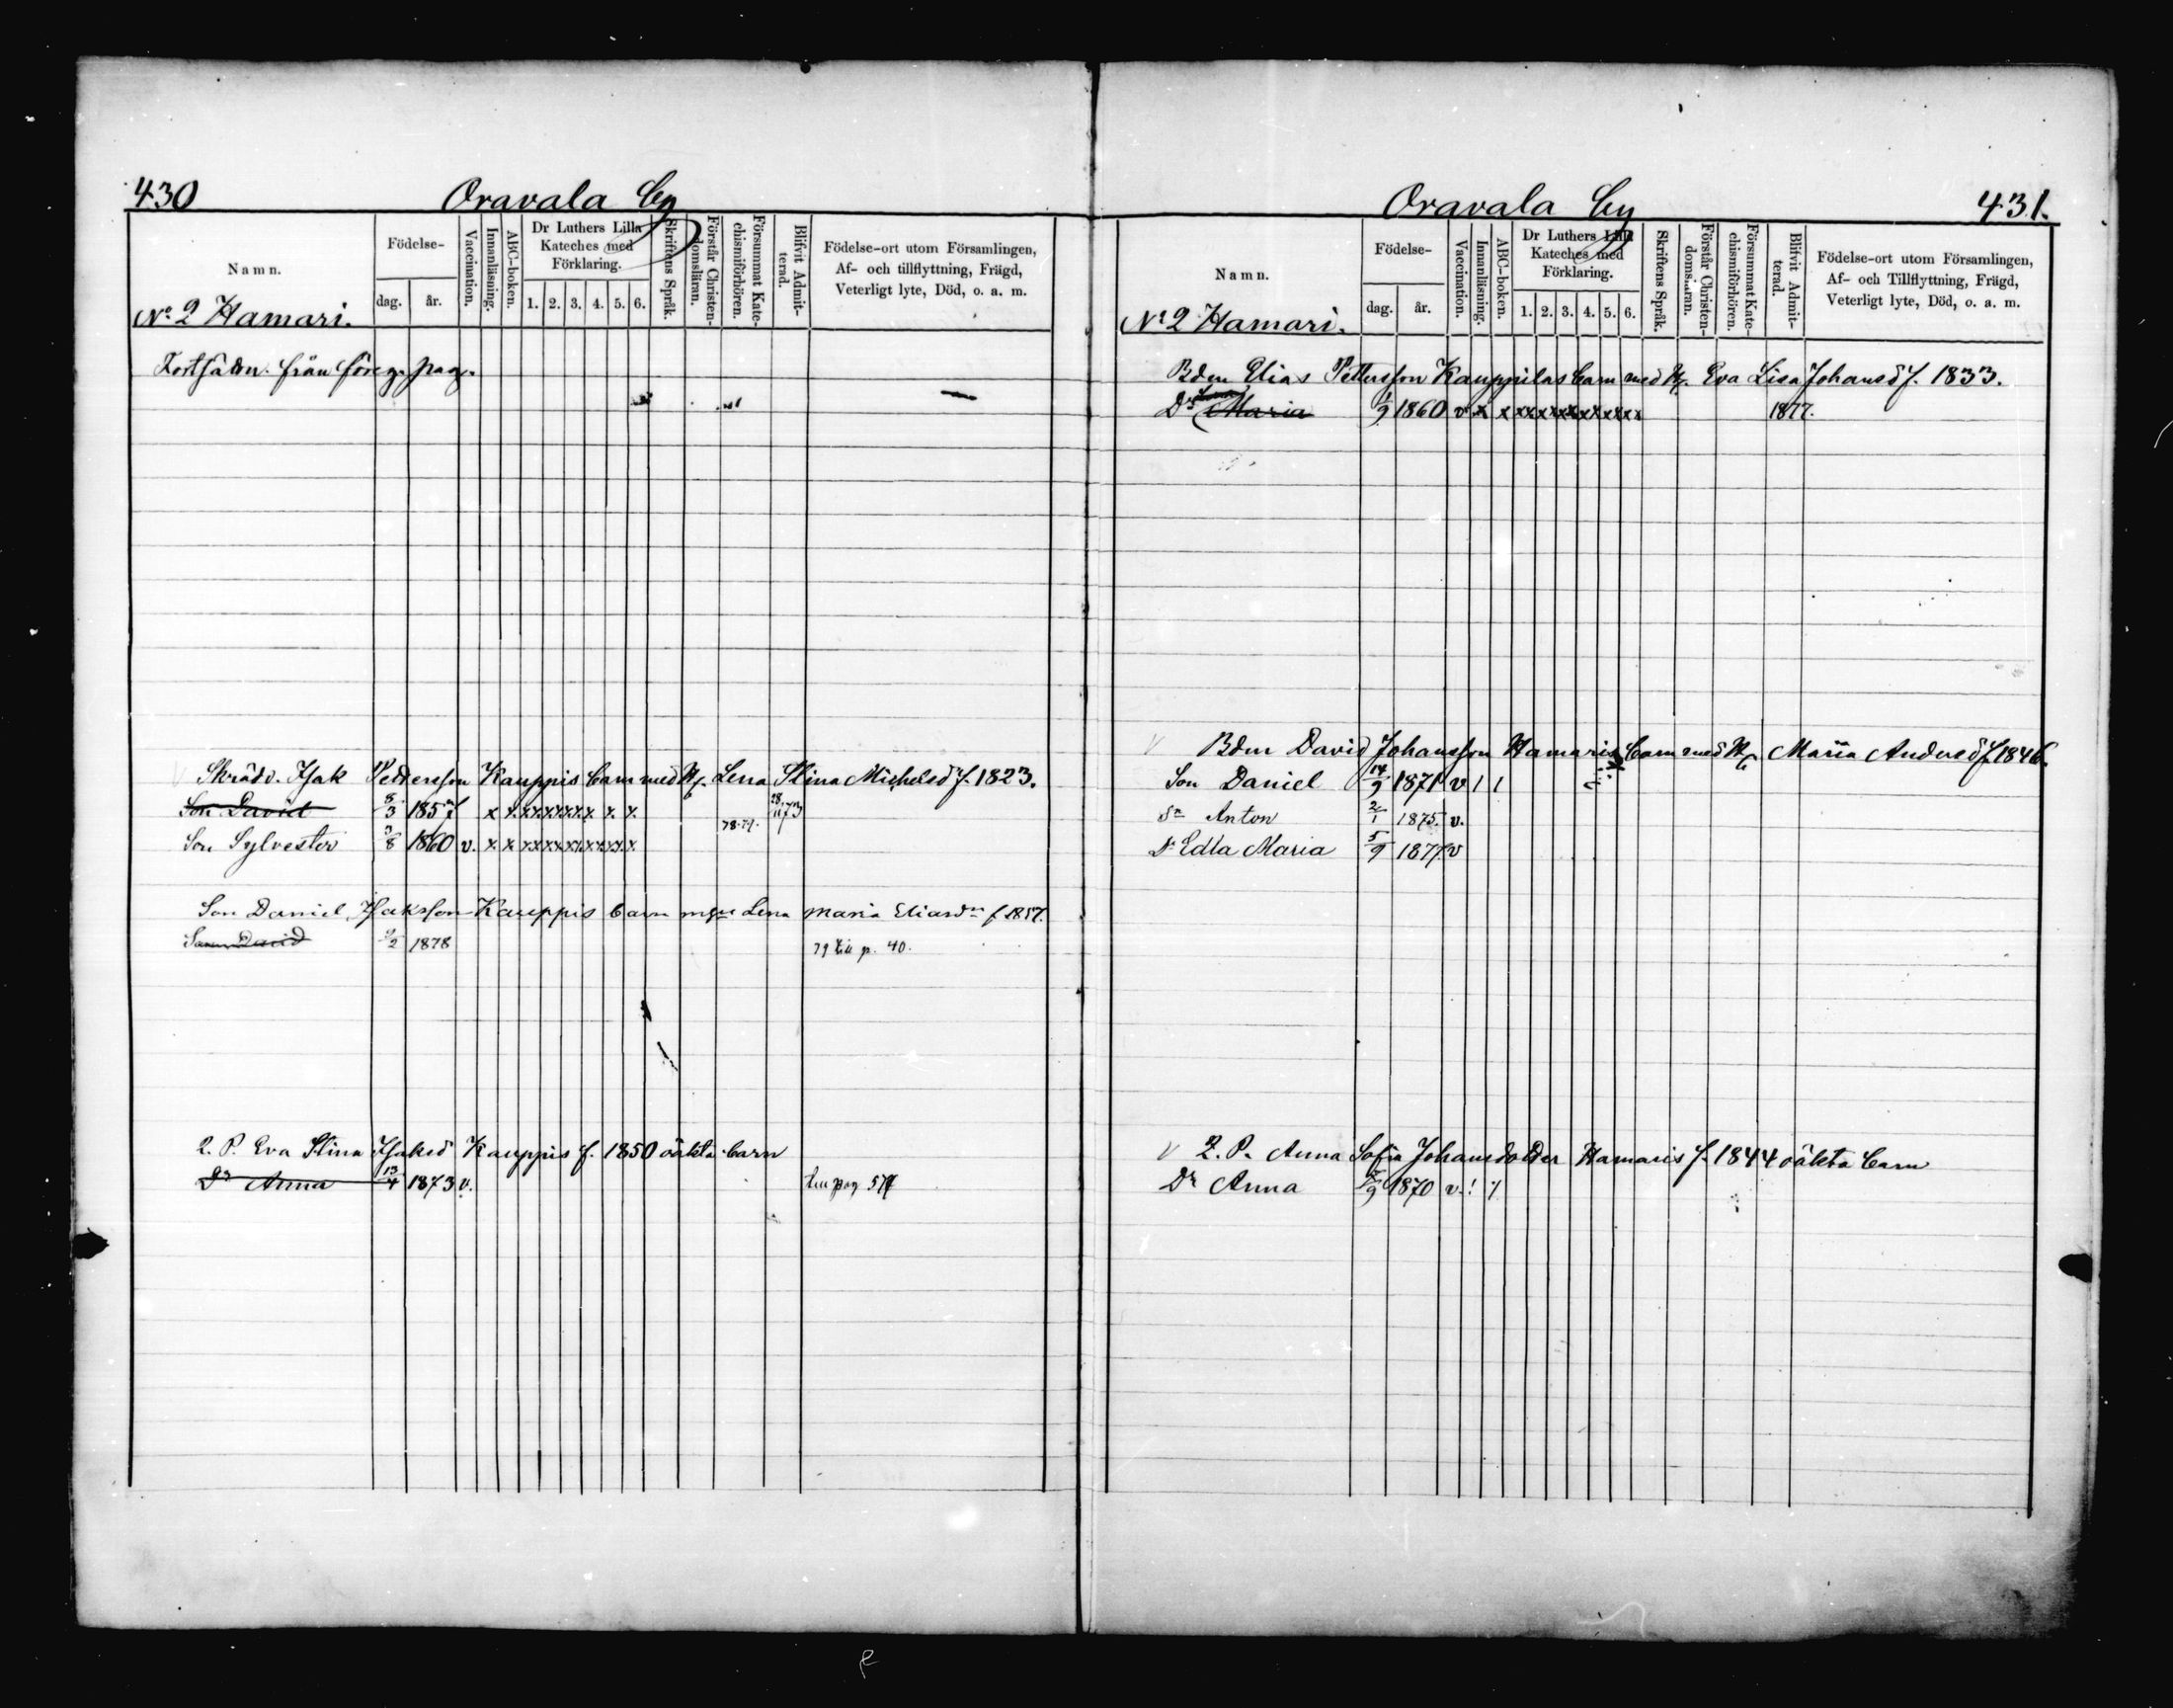 430 Oravala by
Namn. Födelse- dag. år. Vaccination. Innanläsning. ABC-boken. Dr Luthers Lilla Kateches med Förklaring. 1. 2. 3. 4. 5. 6. Skriftens Språk. Förstår Christendomsläran. Försummat Katechismiförhören. Blifvit Admitterad. Födelse-ort utom Församlingen, Af- och tillflyttning, Frägd, Veterligt lyte, Död, o. a. m.
No 2 Hamari.
Fortsättn. från föreg. pag.
Skrädd. Isak Pettersson Kauppis barn med H. Lena Stina Michelsd f. 1823.
Son David 8/3 1857 x x xxxxxxx x x 28/11 73
Son Sylvester 3/8 1860 v. x x xxxxxxxxxx x 78.79.
Son Daniel Isaksson Kauppis barn m hu Lena Maria Eliasdr f. 1857.
Son David 2/2 1878 79 till p. 40.
Q. P. Eva Stina Isaksd Kauppis f. 1850 oäkta barn
Dr Anna 13/4 1873 v. till pag 577
Oravala by 431.
Namn. Födelse- dag. år. Vaccination. Innanläsning. ABC-boken. Dr Luthers Lilla Kateches med Förklaring. 1. 2. 3. 4. 5. 6. Skriftens Språk. Förstår Christendomsläran. Försummat Katechismiförhören. Blifvit Admitterad. Födelse-ort utom Församlingen, Af- och Tillflyttning, Frägd, Veterligt lyte, Död, o. a. m.
No 2 Hamari.
Bden Elias Pettersson Kauppilas barn med H. Eva Lisa Johansd f. 1833.
Dr Maria 1/9 1860 v x x xxxxxxxxxxxx 1877.
v Bden David Johansson Hamaris barn med H. Maria Andersd f. 1846.
Son Daniel 14/9 1871 v 1 1
Sn Anton 2/1 1875. v.
Dr Edla Maria 5/9 1877 v
v Q. P. Anna Sofia Johansdotter Hamaris f. 1844 oäkta barn
Dr Anna 5/9 1870 v. ! 1.